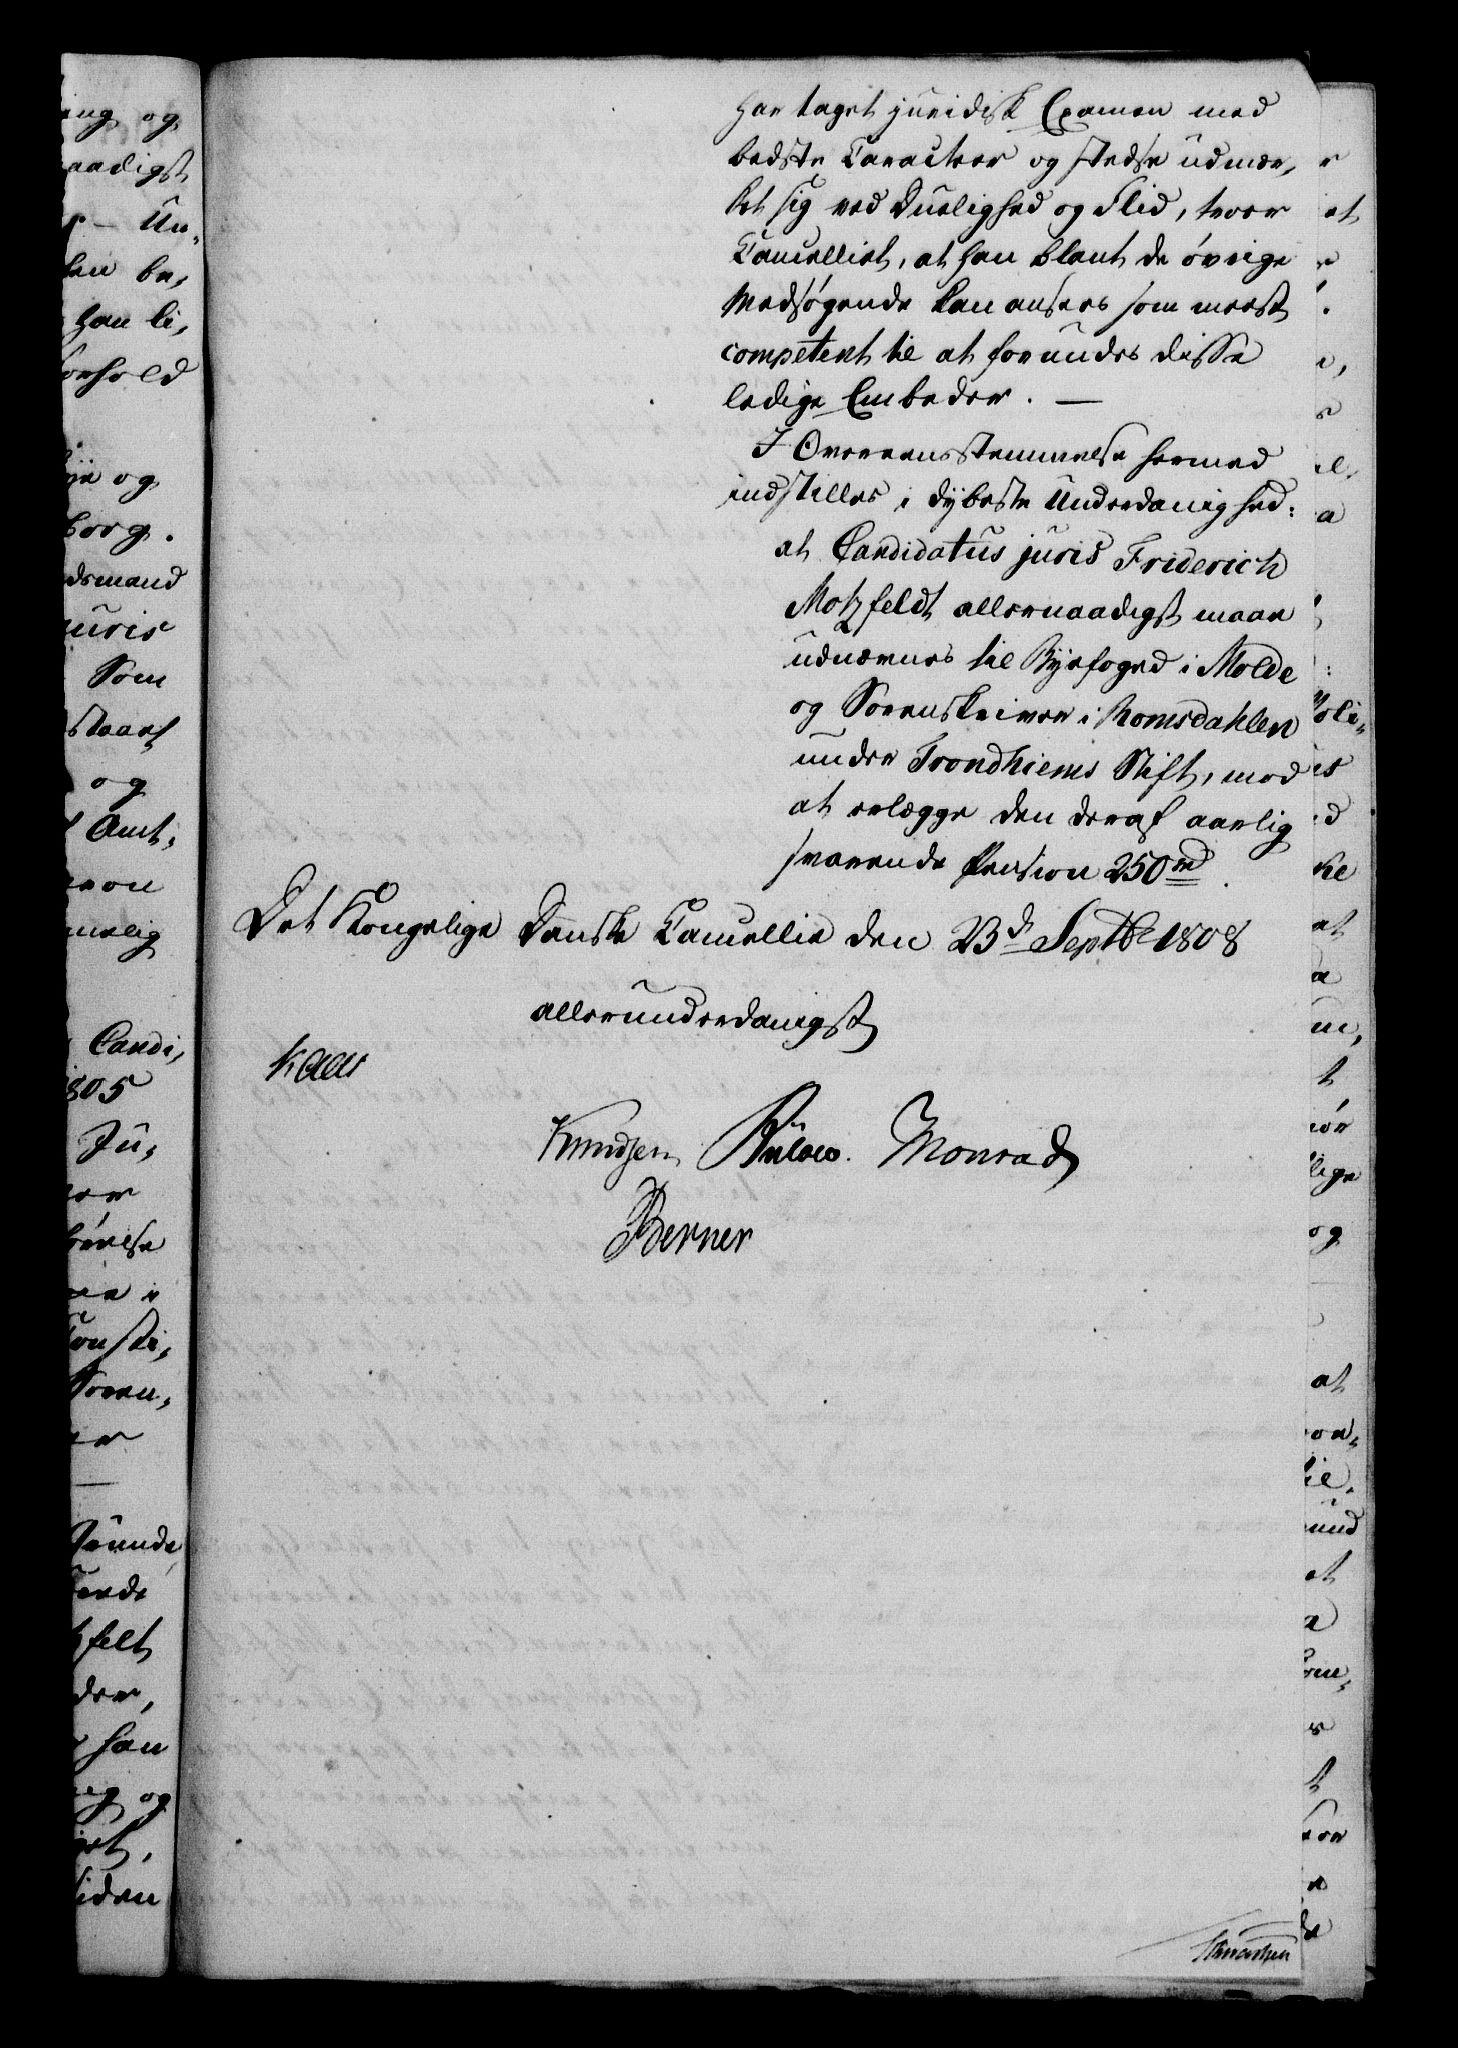 har taget juridisk Examen med
bedste Caracteer og stedse udmær,
ket sig ved Duelighed og Flid, troer
Cancelliet, at han blant de øvrige
Medsøgende kan ansees som meest
competent til at forundes disse
ledige Embeder. —
I Overeensstemmelse hermed
indstilles i dybeste Underdanighed:
at Candidatus juris Friderich
Motzfeldt allernaadigst maae
udnævnes til Byefoged i Molde
og Sorenskriver i Romsdahlen
under Trondhiems Stift, mod
at erlægge den deraf aarlig
svarende Pension 250 rd.
Det Kongelige Danske Cancellie den 23d Septbr 1808
allerunderdanigst
Kaas
Knudsen Bülow. Monrad
Berner